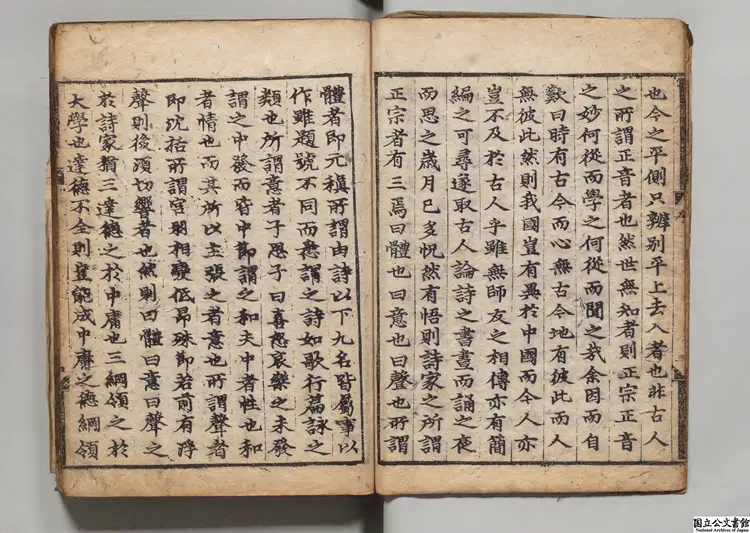 也今之平側只辨別平上去入者也非古人
之所謂正音者也然世無知者則正宗正音
之妙何從而學之何從而聞之哉余因而自
歎曰時有古今而心無古今地有彼此而人
無彼此然則我國豈有異於中國而今人亦
豈不及於古人乎雖無師友之相傳亦有簡
編之可尋遂取古人論詩之書晝而誦之夜
而思之歲月已多怳然有悟則詩家之所謂
正宗者有三焉曰體也曰意也曰聲也所謂
體者即元稹所謂由詩以下九名皆屬事以
作雖題號不同而悉謂之詩如歌行篇詠之
類也所謂意者子思子曰喜怒哀樂之未發
謂之中發而皆中節謂之和夫中者性也和
者情也而其所以主張之者意也所謂聲者
即沈括所謂宮羽相變低昂殊節若前有浮
聲則後須切響者也然則曰體曰意曰聲之
於詩家猶三達德之於中庸也三綱領之於
大學也達德不全則豈能成中庸之德綱領
序
国立公文書館
National Archives of Japan